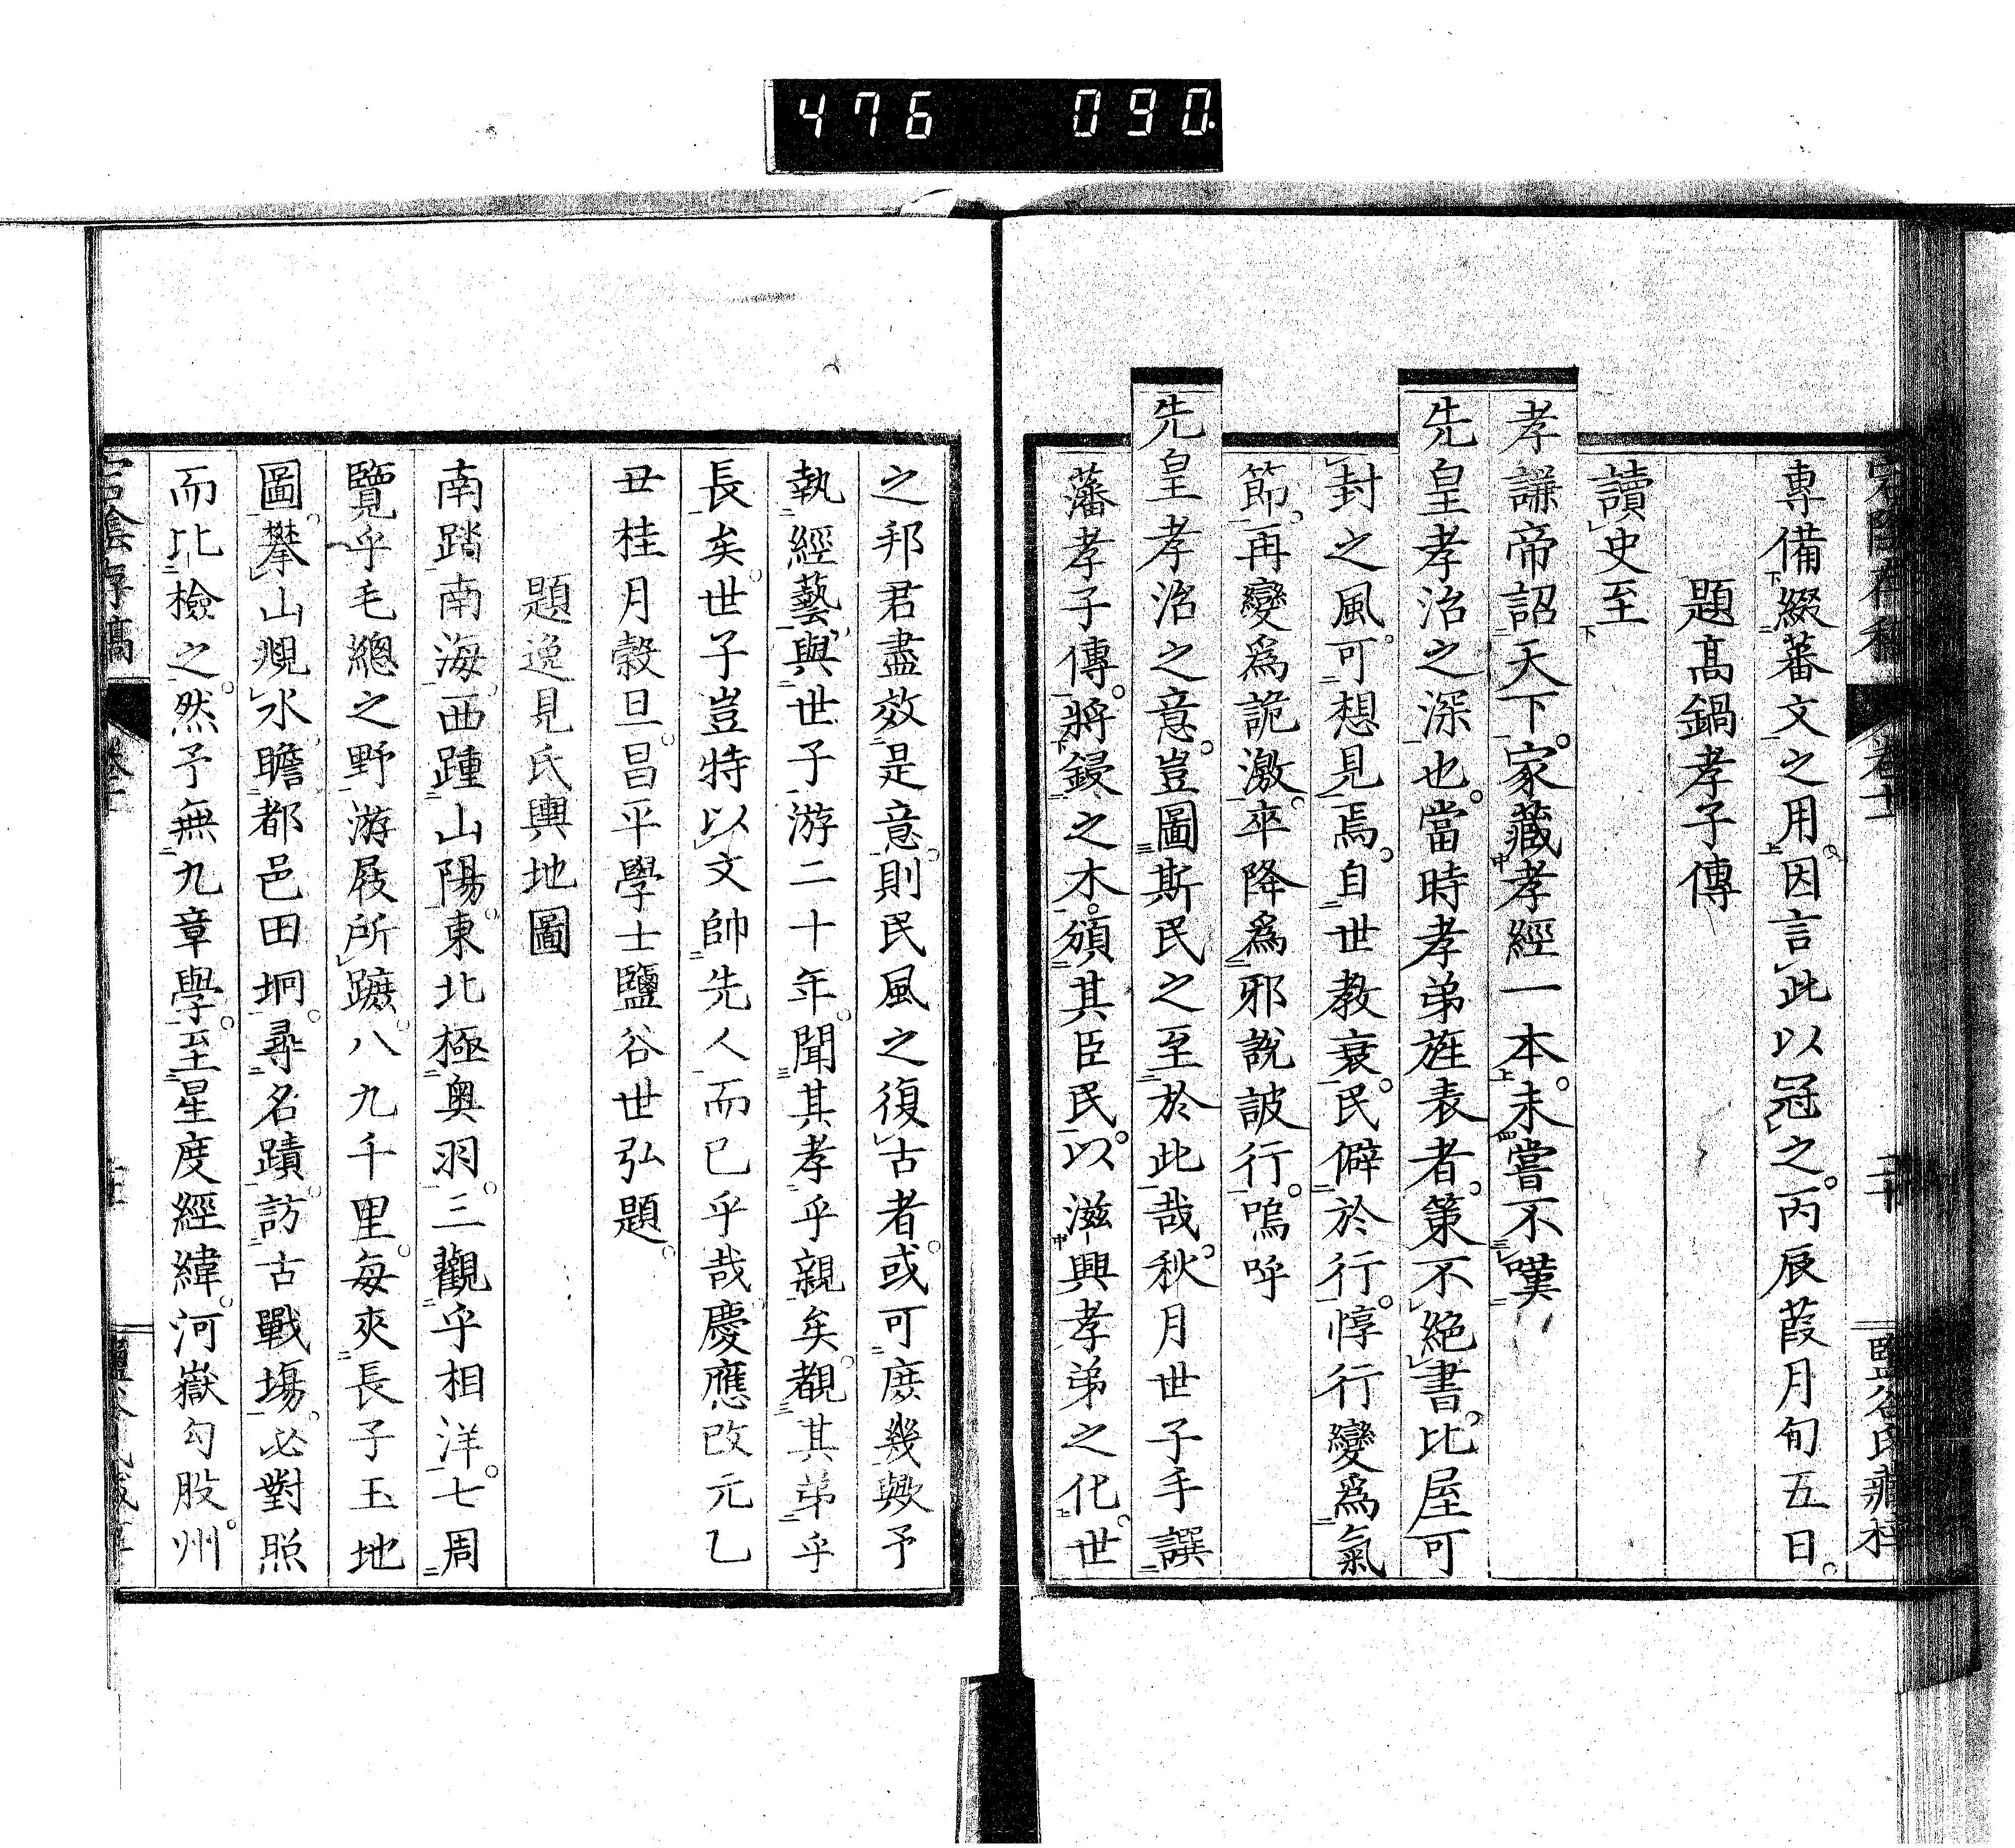 476 090
專備綴蕃文之用因言此以冠之丙辰葭月旬五日
題高鍋孝子傳
讀史至
孝謙帝詔天下家藏孝經一本未嘗不嘆
先皇孝治之深也當時孝弟旌表者策不絕書比屋可
封之風可想見焉自世教衰民僻於行惇行變爲氣
節再變爲詭激卒降爲邪說詖行嗚呼
先皇孝治之意豈圖斯民之至於此哉秋月世子手譔
藩孝子傳將鋟之木頒其臣民以滋興孝弟之化世
之邦君盡效是意則民風之復古者或可庶幾歟予
執經藝與世子游二十年聞其孝乎親矣覩其弟乎
長矣世子豈特以文帥先人而已乎哉慶應改元乙
丑桂月穀旦昌平學士鹽谷世弘題
題逸見氏輿地圖
南踏南海西踵山陽東北極奥羽三觀乎相洋七周
覽乎毛總之野游屐所蹠八九千里每夾長子玉地
圖攀山覜水瞻都邑田坰尋名蹟訪古戰場必對照
而比檢之然予無九章學至星度經緯河嶽勾股州